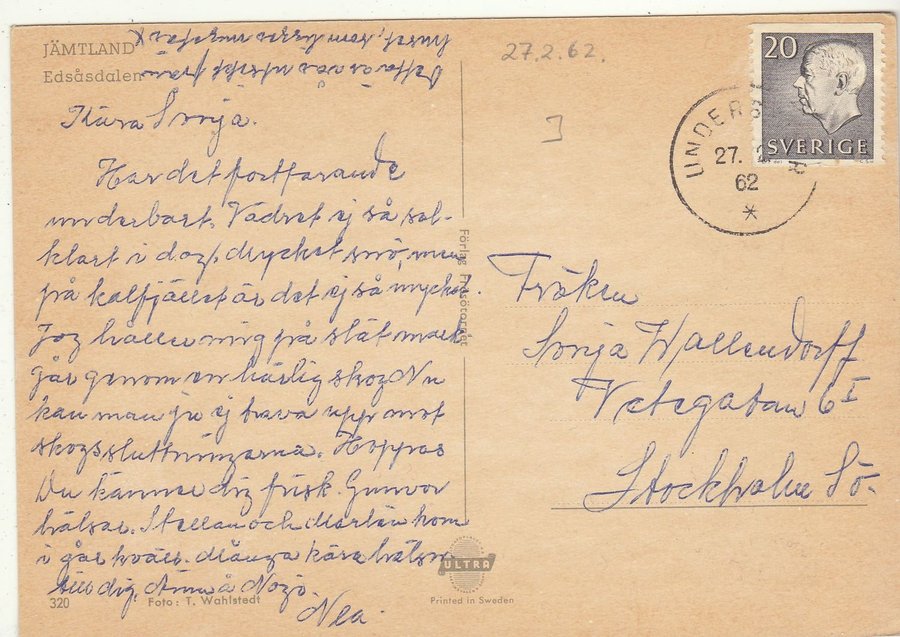 JÄMTLAND
Edsåsdalen
Detta är vår utsikt från
huset, som
Kära Sonja.
Har det fortfarande
underbart. Vädret ej så sol-
klart i dag. Mycket snö, men
på kalfjället är det ej så mycket.
Jag håller mig på slät mark
går genom en härlig skog Nu
kan man ju ej trava upp mot
skogssluttningarna. Hoppas
Du känner dig frisk. Gunvor
hälsar. Stellan och Märtha kom
i går kväll. Många kära hälsn
till dig,
Nea.
320
Foto: T. Wahlstedt
Förlag Frösötorget
ULTRA
Printed in Sweden
27.2.62.
20
SVERIGE
UNDERS
27. 2
62
Fröken
Sonja Wallendorff
Vetegatan 6 I
Stockholm Sö.